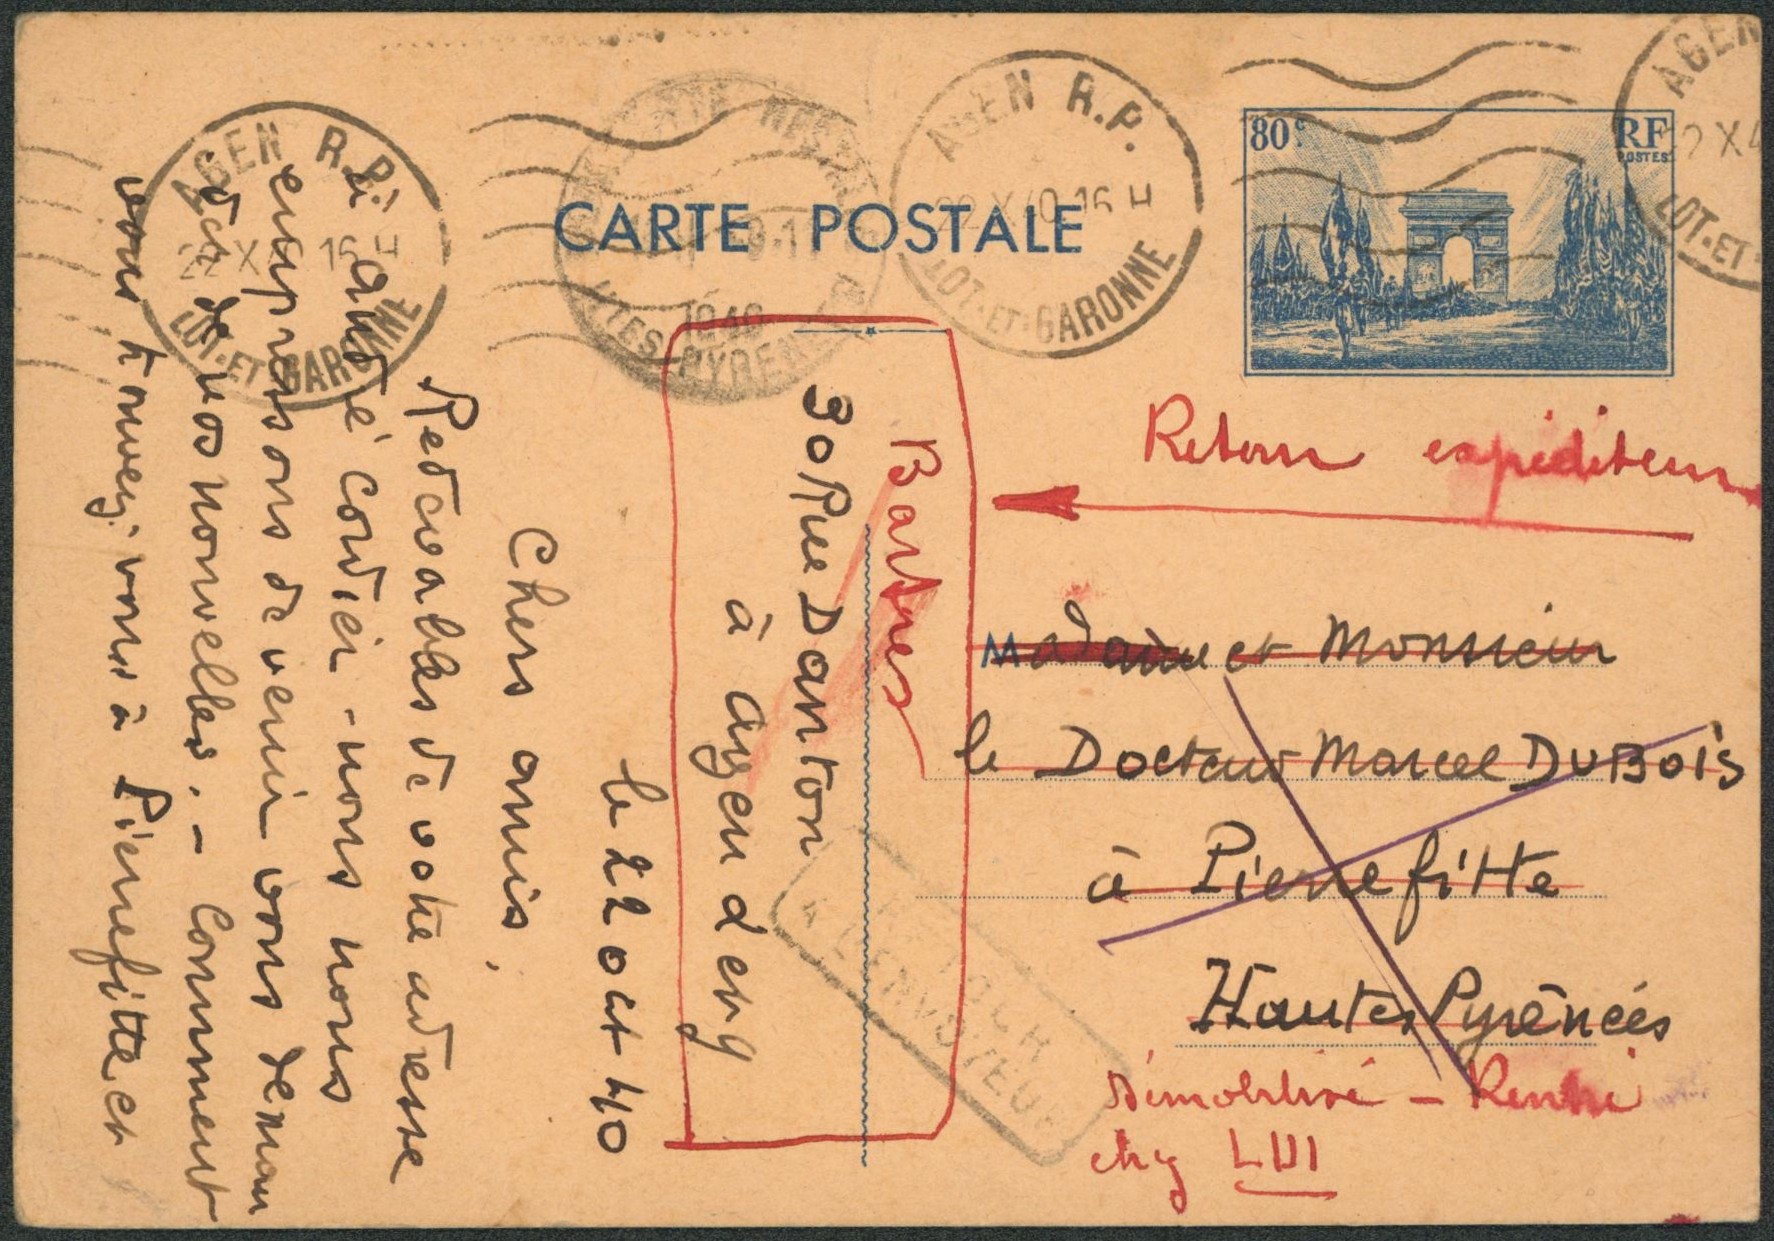 CARTE POSTALE
80c
RF
POSTES
AGEN R.P.
22 X 40 16 H
LOT-ET-GARONNE
AGEN R.P.
22 X 16 H
LOT-ET-GARONNE
AGEN
22 X 4
LOT-ET
1940
HTES-PYRENEES
Retour expéditeur
Madame et Monsieur
le Docteur Marcel DUBOIS
à Pierrefitte
Hautes Pyrénées
démobilisé - Rentré
chez LUI
RETOUR
A L'ENVOYEUR
30 Rue Danton
à agen d et g
le 22 oct 40
Chers amis,
Redevables de votre adresse
à andré Cordier - nous nous
empressons de venir vous deman
der de vos nouvelles. - Comment
vous trouvez vous à Pierrefitte et